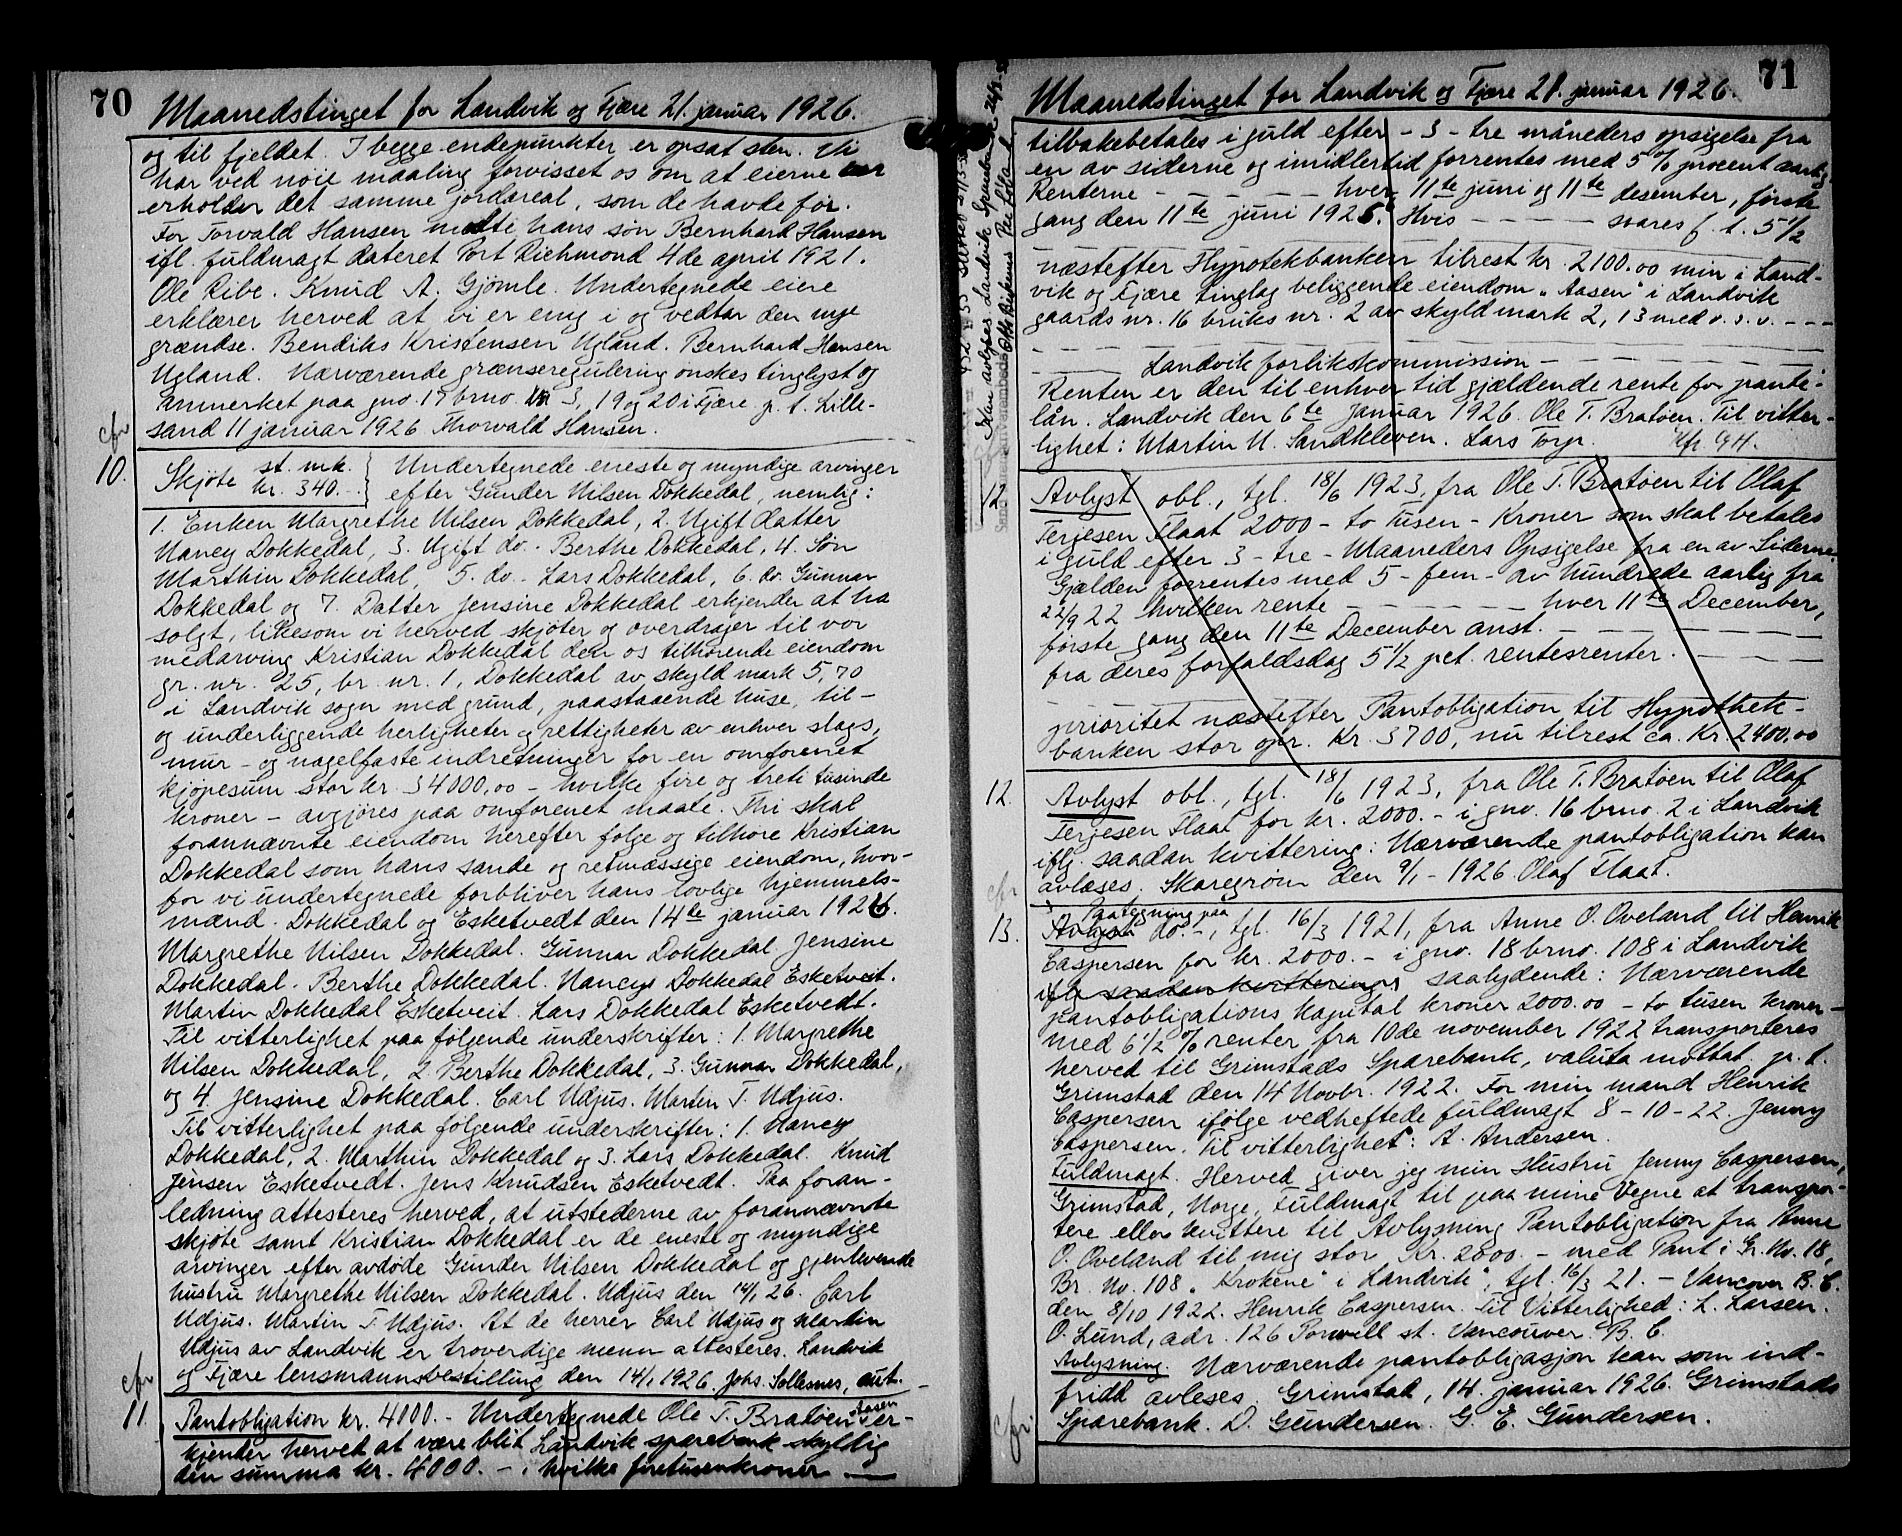 70
Maanedstinget for Landvik og Fjære 21. januar 1926.
og til fjeldet. I begge endepunkter er opsat sten. Vi
har ved nøie maaling forvisset os om at eierne
erholder det samme jordareal, som de havde før.
For Torvald Hansen møtte hans søn Bernhard Hansen
ifl. fuldmagt dateret Port Richmond 4de april 1921.
Ole Ribe. Knud A. Gjömle. Undertegnede eiere
erklærer herved at vi er enig i og vedtar den nye
grændse. Bendiks Kristensen Ugland. Bernhard Hansen
Ugland. Nærværende grænseregulering önskes tinglyst og
anmerket paa gno. 17 brno. 3, 19 og 20 i Fjære p. t. Lille-
sand 11 januar 1926 Thorvald Hansen.
cfr
10.
Skjøte st. mk. kr. 340.-
Undertegnede eneste og myndige arvinger
efter Gunder Nilsen Dokkedal, nemlig:
1. Enken Margrethe Nilsen Dokkedal, 2. Ugift datter
Nancy Dokkedal, 3. Ugift do. Berthe Dokkedal, 4. Søn
Marthin Dokkedal, 5. do. Lars Dokkedal, 6. do. Gunnar
Dokkedal og 7. Datter Jensine Dokkedal erkjender at ha
solgt, likesom vi herved skjøter og overdrager til vor
medarving Kristian Dokkedal den os tilhørende eiendom
gr. nr. 25, br. nr. 1, Dokkedal av skyld mark 5,70
i Landvik sogn med grund, paastaaende huse, til-
og underliggende herligheter og rettigheter av enhver slags,
mur- og nagelfaste indretninger for en omforenet
kjøpesum stor kr. 34000,00 - hvilke fire og treti tusinde
kroner - avgjøres paa omforenet maate. Thi skal
forannævnte eiendom herefter følge og tilhøre Kristian
Dokkedal som hans sande og retmæssige eiendom, hvor-
for vi undertegnede forbliver hans lovlige hjemmels-
mænd. Dokkedal og Esketvedt den 14te januar 1926.
Margrethe Nilsen Dokkedal. Gunnar Dokkedal. Jensine
Dokkedal. Berthe Dokkedal. Nancy Dokkedal Esketveit.
Martin Dokkedal Esketveit. Lars Dokkedal Esketvedt.
Til vitterlighet paa følgende underskrifter: 1. Margrethe
Nilsen Dokkedal, 2. Berthe Dokkedal, 3. Gunnar Dokkedal,
og 4. Jensine Dokkedal. Carl Udjus. Martin T. Udjus.
Til vitterlighet paa følgende underskrifter: 1. Nancy
Dokkedal, 2. Marthin Dokkedal og 3. Lars Dokkedal. Knud
Jensen Esketvedt. Jens Knudsen Esketvedt. Paa foran-
ledning attesteres herved, at utstederne av forannævnte
skjøte samt Kristian Dokkedal er de eneste og myndige
arvinger efter avdøde Gunder Nilsen Dokkedal og gjenlevende
hustru Margrethe Nilsen Dokkedal. Udjus den 14/1 26. Carl
Udjus. Martin T. Udjus. At de herrer Carl Udjus og Martin
Udjus av Landvik er troverdige menn attesteres. Landvik
og Fjære lensmannsbestilling den 14/1 1926. Johs. Sollesnes, aut.
cfr
11
Pantobligation kr. 4000.- Undertegnede Ole T. Bratøen Aasen er-
kjender herved at være blit Landvik sparebank skyldig
den summa kr. 4000.- hvilke firetusen kroner
71
Maanedstinget for Landvik og Fjære 21. januar 1926.
tilbakebetales i guld efter - 3 - tre måneders opsigelse fra
en av siderne og imidlertid forrentes med 5 % procent aarlig
Renterne - - - hver 11te juni og 11te desember, første
gang den 11te juni 1926. Hvis - - - svares f. t. 5 1/2
næstefter Hypotekbanken tilrest kr. 2100.00 min i Land-
vik og Fjære tinglag beliggende eiendom "Aasen" i Landvik
gaards nr. 16 bruks nr. 2 av skyld mark 2,13 med v. s. v. - - -
Landvik forlikskommission
Renten er den til enhver tid gjældende rente for pante-
lån. Landvik den 6te januar 1926. Ole T. Bratøen. Til vitter-
lighet: Martin N. Sandkleven. Lars Torp.
12
Avlyst obl., tgl. 18/6 1923, fra Ole T. Bratøen til Olaf
Terjesen Flaat 2000 - to Tusen - Kroner som skal betales
i guld efter 3 - tre - Maaneders Opsigelse fra en av Siderne.
Gjælden forrentes med 5 - fem - av hundrede aarlig fra
22/9 22 hvilken rente - - - hver 11te December,
første gang den 11te December anst. - - -
fra deres forfaldsdag 5 1/2 pct. rentesrenter. - - -
prioritet næstefter Pantobligation til Hypothek-
banken stor opr. Kr. 3700, nu tilrest ca. Kr. 2400,00
12.
Avlyst obl., tgl. 18/6 1923, fra Ole T. Bratøen til Olaf
Terjesen Flaat for kr. 2000.- i gno. 16 brno. 2 i Landvik
iflg. saadan kvittering: Nærværende pantobligation kan
avlæses. Skaregrøm den 9/1 - 1926. Olaf Flaat.
cfr
13.
Paategning paa
Avlyst do.-, tgl. 16/3 1921, fra Anne O. Oveland til Henrik
Caspersen for kr. 2000.- i gno. 18 brno. 108 i Landvik
iflg. saadan kvittering saalydende: Nærværende
pantobligations kapital kroner 2000.00 - to tusen kroner -
med 6 1/2 % renter fra 10de november 1922 transporteres
herved til Grimstads Sparebank, valuta mottat. p. t.
Grimstad den 14 Novbr. 1922. For min mand Henrik
Caspersen ifölge vedheftede fuldmagt 8-10-22. Jenny
Caspersen. Til vitterlighet: A. Andersen.
Fuldmagt. Herved giver jeg min Hustru Jenny Caspersen,
Grimstad, Norge, Fuldmagt til paa mine Vegne at transpor-
tere eller kvittere til Avlysning Pantobligation fra Anne
O. Oveland til mig stor Kr. 2000.- med Pant i Gr. No. 18,
Br. No. 108 "Krokene" i Landvik, tgl. 16/3 21. - Vancover B. C.
den 8/10 1922. Henrik Caspersen. Til Vitterlighed: L. Larsen.
O. Lund, adr. 126 Powell st. Vancouver. B. C.
Avlysning. Nærværende pantobligasjon kan som ind-
fridd avleses. Grimstad, 14. januar 1926. Grimstads
Sparebank. D. Gundersen. G. E. Gundersen.
cfr.